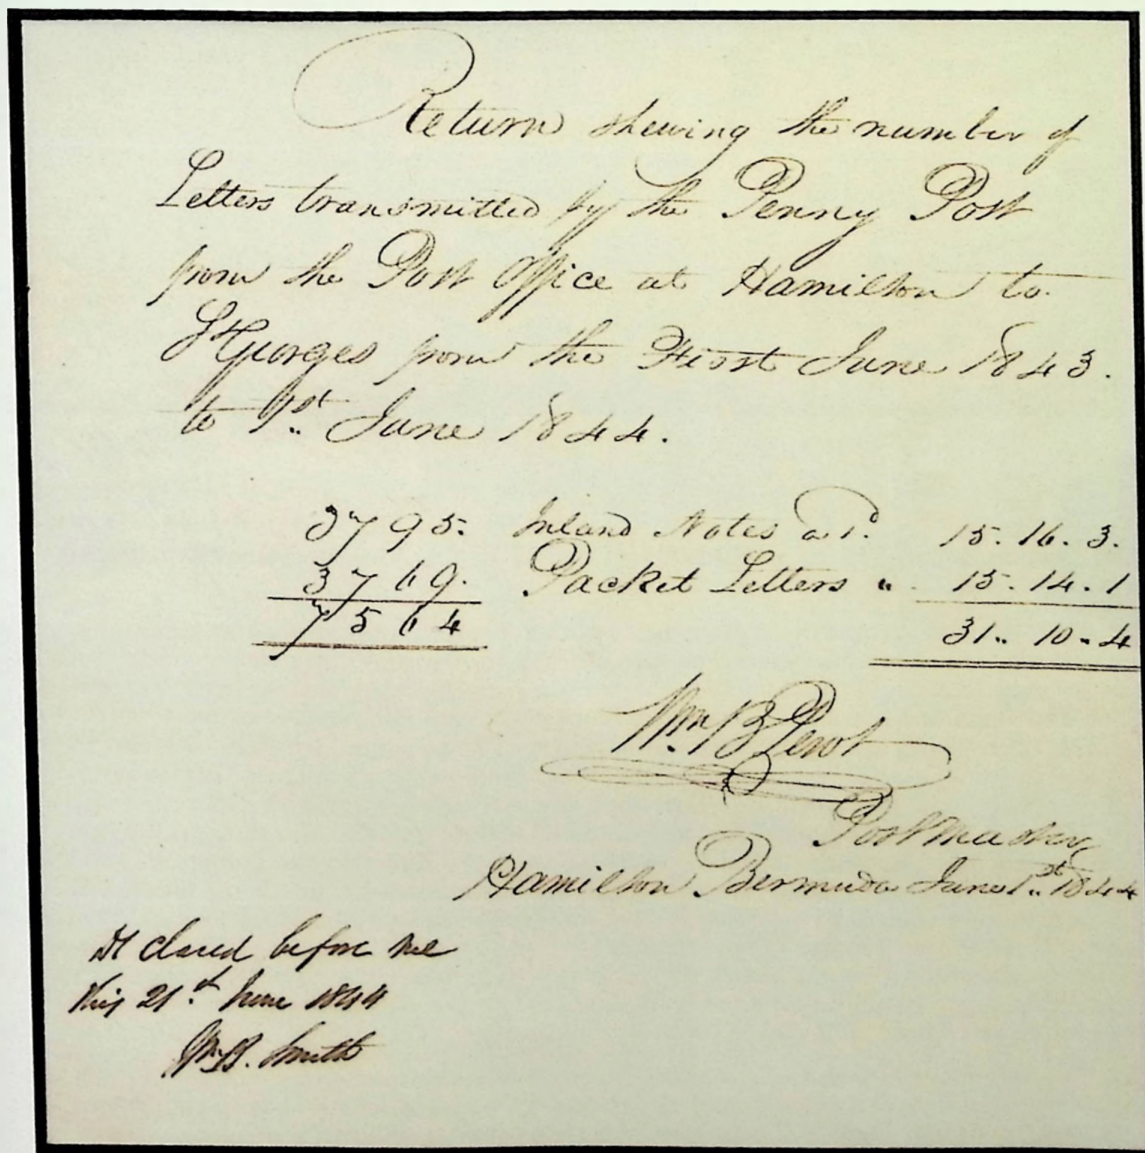 Return shewing the number of
Letters transmitted by the Penny Post
from the Post Office at Hamilton to
St Georges from the First June 1843.
to 1st June 1844.
3795. Inland Notes a 1d. 15. 16. 3.
3769. Packet Letters " 15. 14. 1
7564 31. 10. 4
Wm B Perot
Postmaster
Hamilton Bermuda June 1st 1844
Declared before me
this 21st June 1844
Wm B. Smith